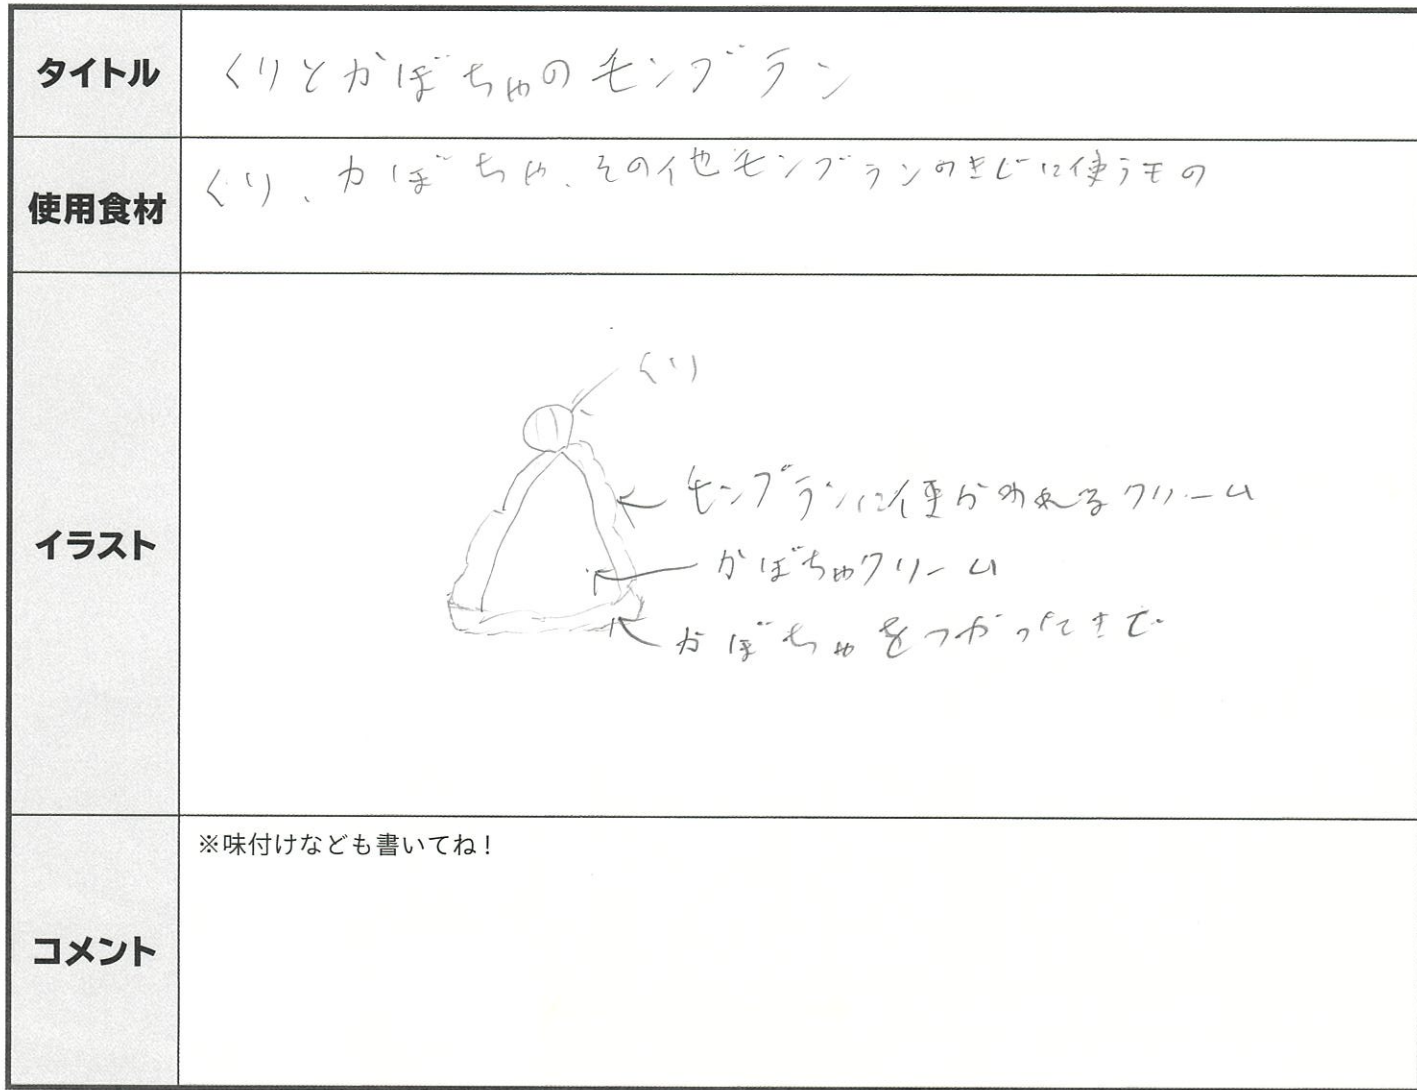 タイトル
くりとかぼちゃのモンブラン
使用食材
くり、かぼちゃ、その他モンブランのきじに使うもの
イラスト
くり
モンブランに使われるクリーム
かぼちゃクリーム
かぼちゃをつかってきじ
コメント
※味付けなども書いてね!